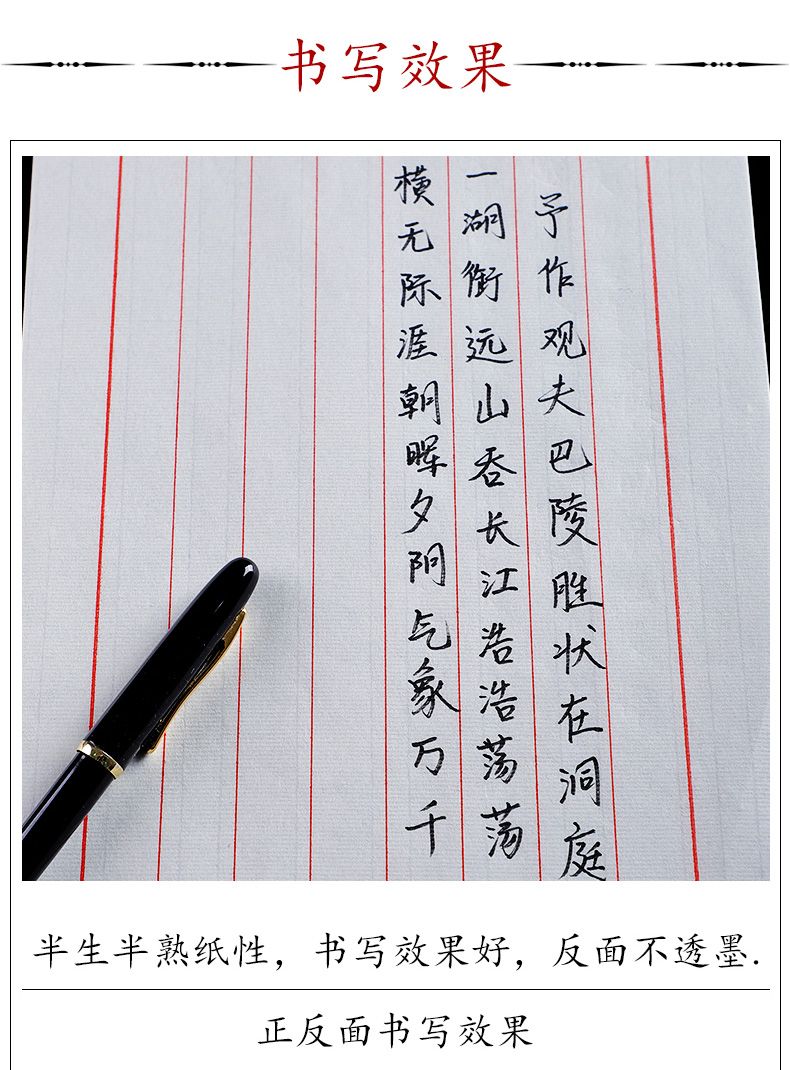 书写效果
予作观夫巴陵胜状在洞庭
一湖衔远山吞长江浩浩荡荡
横无际涯朝晖夕阴气象万千
半生半熟纸性，书写效果好，反面不透墨.
正反面书写效果